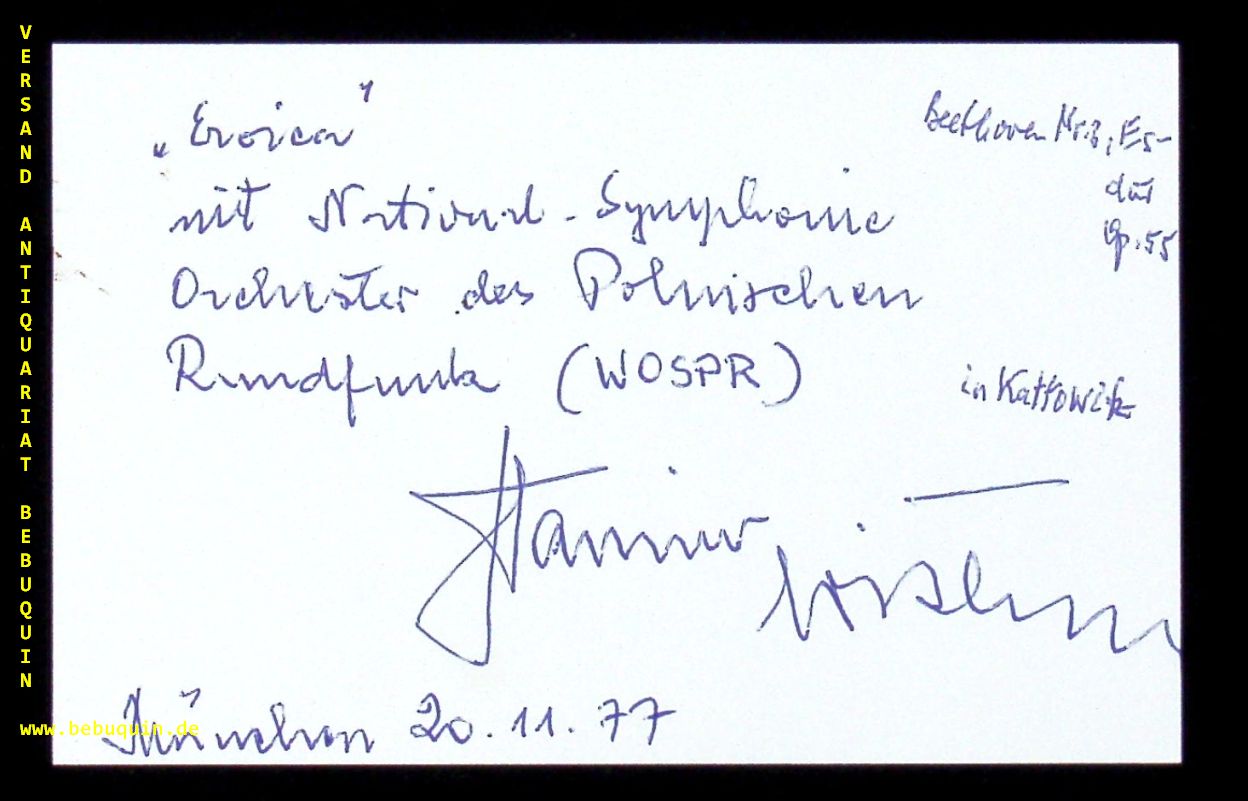 VERSAND ANTIQUARIAT BEBUQUIN
„Eroica"
Beethoven Nr. 3, Es-
dur
Op. 55
mit National-Symphonie
Orchester des Polnischen
Rundfunks (WOSPR)
in Kattowitz
München 20.11.77
www.bebuquin.de